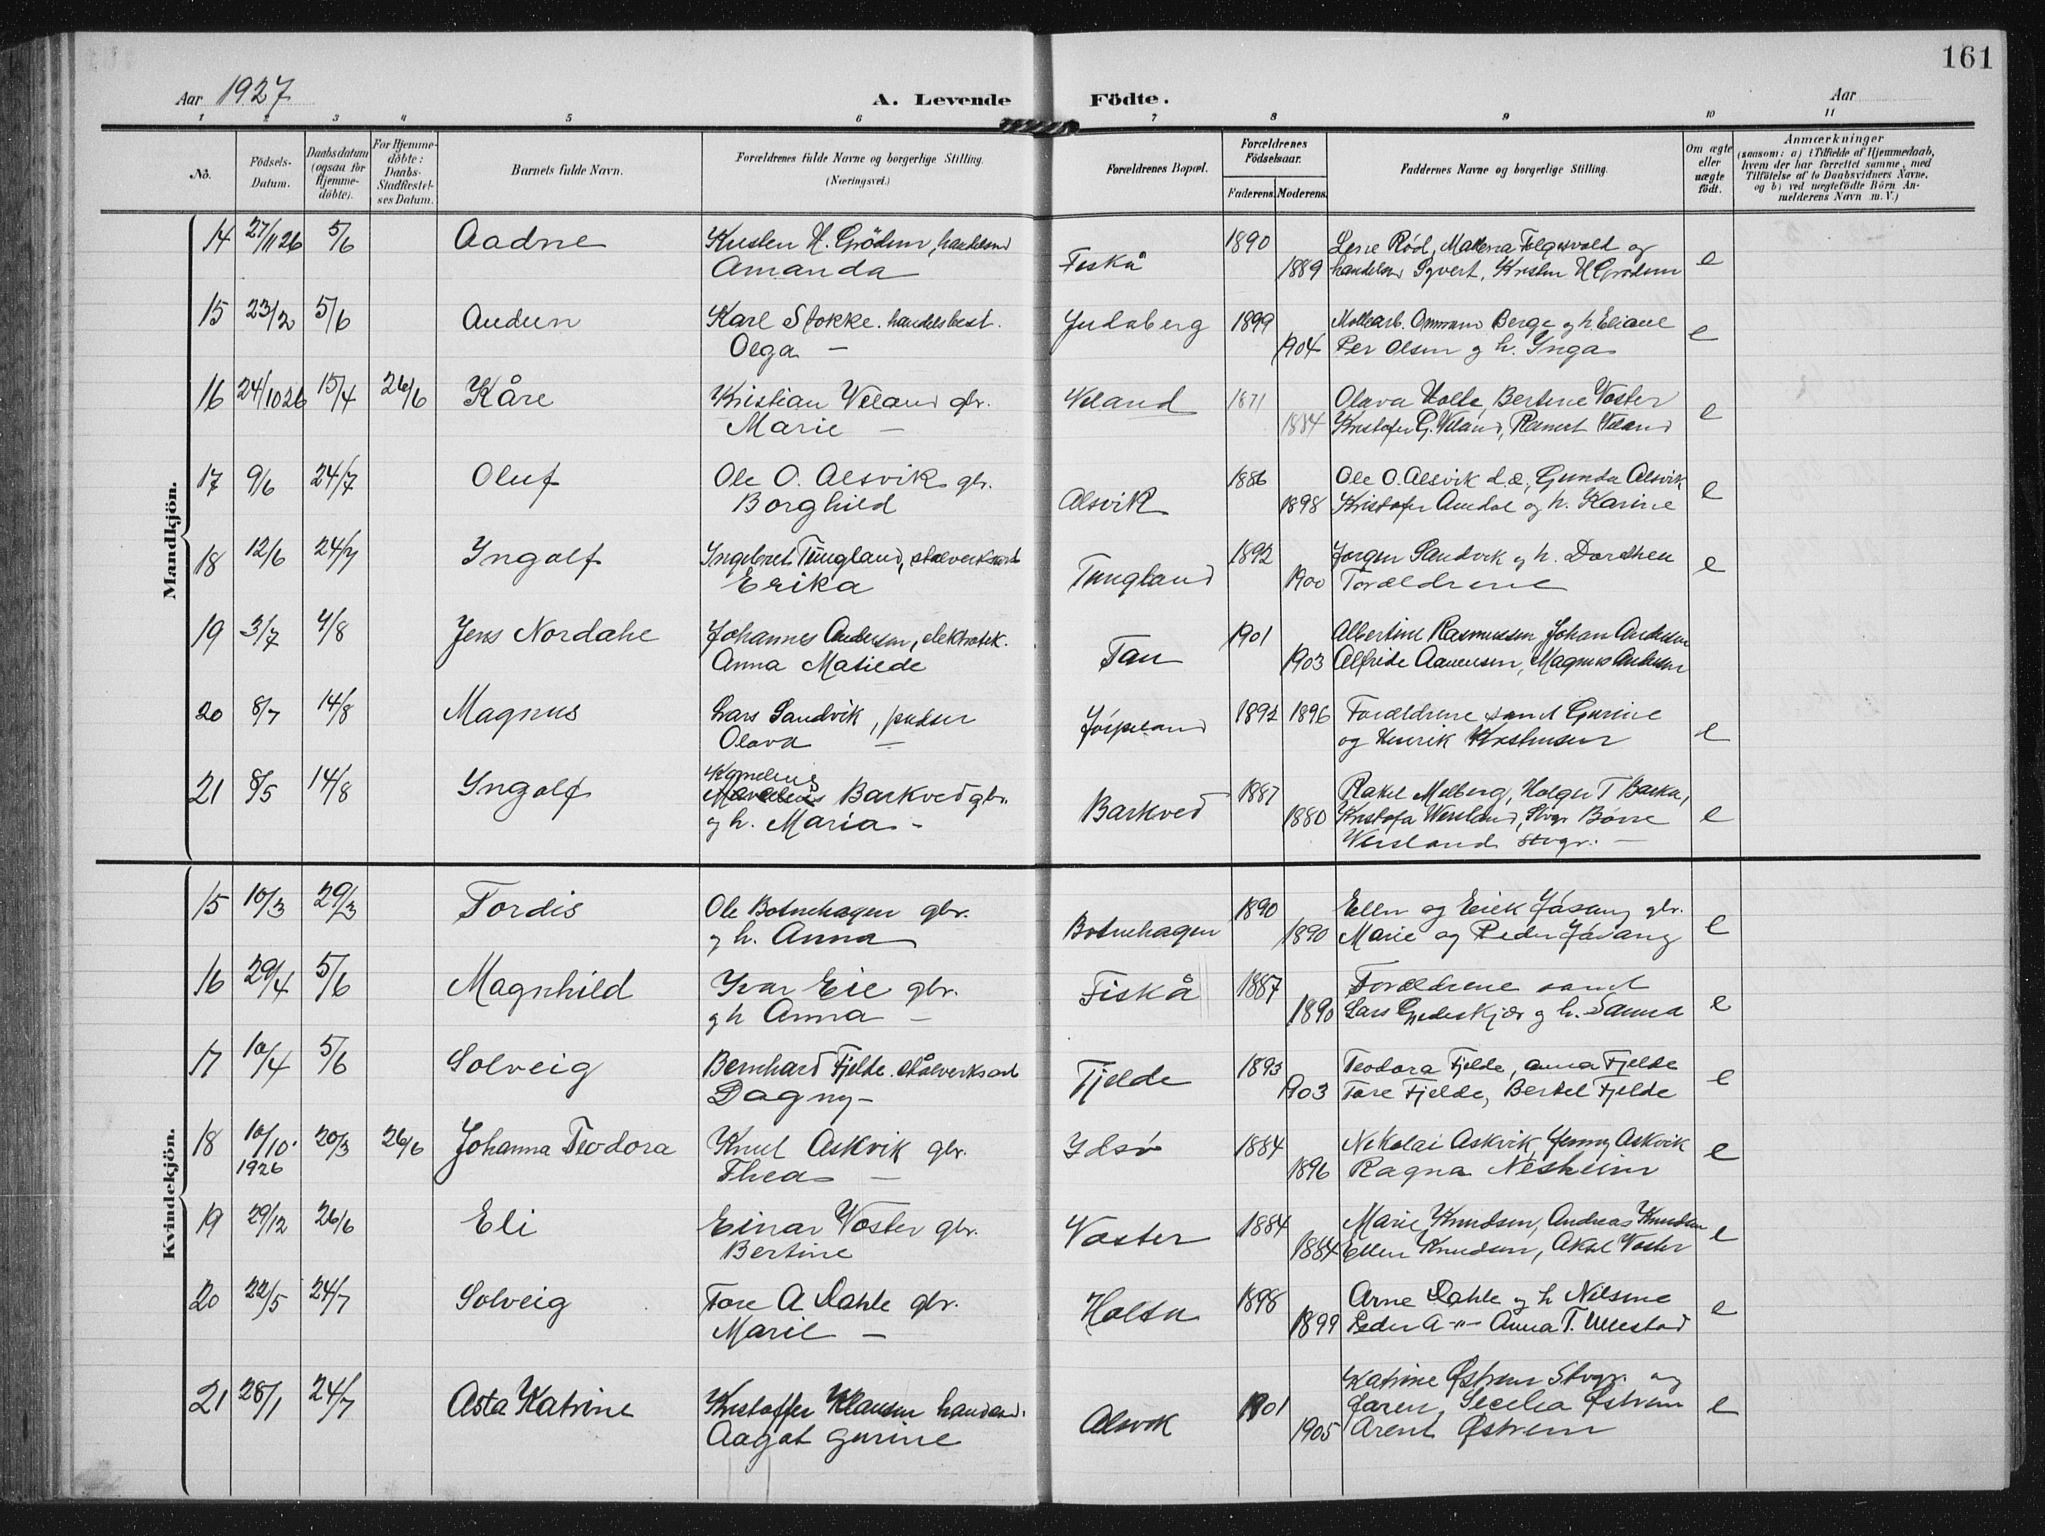 161
Aar 1927 A. Levende Födte. Aar
1 2 3 4 5 6 7 8 9 10 11
No. Födsels-Datum. Daabsdatum (ogsaa for Hjemmedöbte). For Hjemmedöbte: Daabs-Stadfæstelses Datum. Barnets fulde Navn. Forældrenes fulde Navne og borgerlige Stilling. (Næringsvei.) Forældrenes Bopæl. Forældrenes Födselsaar. Faderens. Moderens. Faddernes Navne og borgerlige Stilling. Om ægte eller uægte födt. Anmærkninger (saasom: a) i Tilfælde af Hjemmedaab, hvem der har forrettet samme, med Tilföielse af to Daabsvidners Navne, og b) ved uægtefödte Börn Anmelderens Navn m. V.)
Mandkjön.
14 27/11 26 5/6 Aadne H. Grödem, Fiskå 1890 Rød, og
Amanda 1889 H Grödem e
15 23/2 5/6 Audun Karl Stokke. handelsbest. Judaberg 1899 Berge og h.
Olga — 1904 Per Olsen og h. Inga e
16 24/10 26 15/4 26/6 Kåre Kristian Veland gbr. Veland 1871 Olava Holle, Bertine Voster
Marie — 1884 Kristofer G. Veland, Veland e
17 9/6 24/7 Oluf Ole O. Alsvik gbr. Alsvik 1886 Ole O. Alsvik d.æ., Gunda Alsvik
Borghild 1898 Kristofer og h. Karine e
18 12/6 24/7 Ingolf Ingebret Tungland, Tungland 1892 Jørgen Sandvik og h. Dorthea
Erika 1900 Forældrene e
19 3/7 4/8 Jens Nordahl Johannes Andersen, Tau 1901 Albertine Rasmussen, Johan Andersen
Anna Matilde 1903 Alfride Magnus Andersen
20 8/7 14/8 Magnus Lars Sandvik, pudser Jøspeland 1892 1896 Forældrene samt Gurine
Olava — og Henrik Kristensen e
21 8/5 14/8 Ingolf Kornelius Barkved gbr. Barkved 1887 Rakel Melberg, Holger T
og h. Maria - 1880 Børre e
Stvgr. —
Kvindekjön.
15 10/3 29/3 Tordis Ole Botnehagen gbr. Botnehagen 1890 Ellen og Eirik Jøsang gbr.
og h. Anna 1890 Marie og Peder Jøsang e
16 29/4 5/6 Magnhild Ivar Eie gbr. Fiskå 1887 Forældrene samt
og h Anna — 1890 Lars og h. e
17 10/4 5/6 Solveig Bernhard Fjelde. stålverksarb Fjelde 1893 Teodora Fjelde, Anna Fjelde
Dagny — 1903 Tore Fjelde, Bertel Fjelde e
18 10/10 1926 20/3 26/6 Johanna Teodora Knut Askvik gbr. Idsø 1884 Nikolai Askvik, Jenny Askvik
Thea — 1896 Ragna Nesheim e
19 29/12 26/6 Eli Einar Voster gbr. Voster 1884 Marie Knudsen, Andreas Knudsen
Bertine 1884 Ellen Knudsen, Aksel Voster e
20 22/5 24/7 Solveig Tore A Dahle gbr. Holta 1898 Arne Dahle og h Nilsine
Marie — 1899 Peder A -"- Anna T. Ullestad e
21 28/1 24/7 Asta Katrine Kristoffer Klausen Alsvik 1901 Katrine Østrem Stvgr. og
Aagot Gurine 1905 Cecilia Østrem
Arent Østrem e